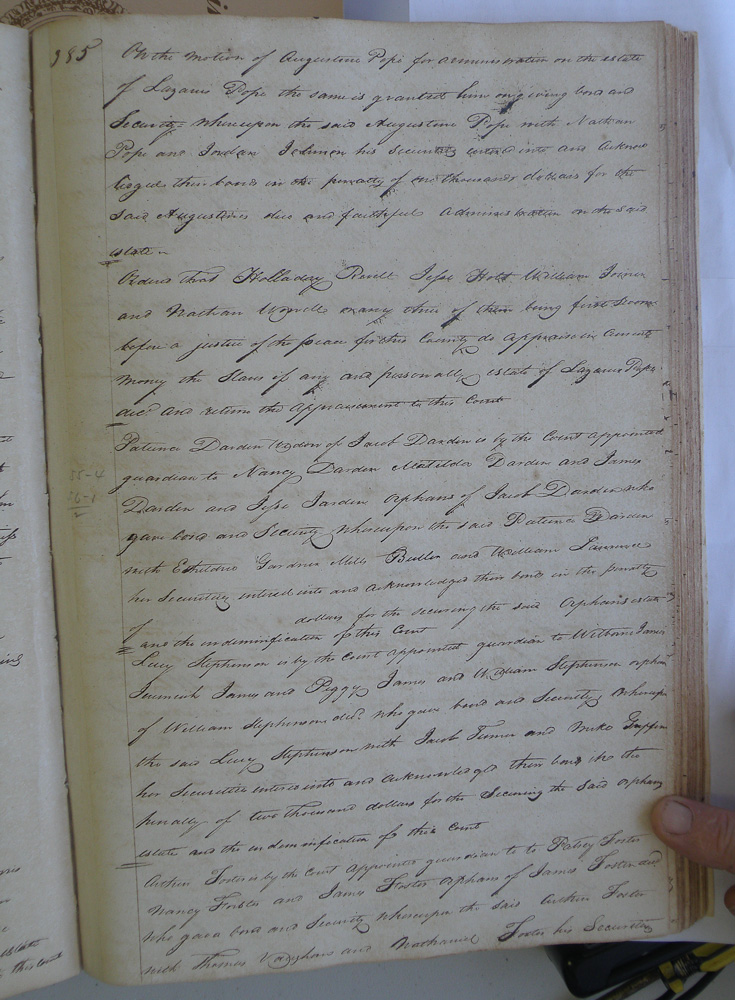 385
On the motion of Augustine Pope for administration on the estate
of Lazarus Pope the same is granted him on giving bond and
Security Whereupon the said Augustine Pope with Nathan
Pope and Jordan Johnson his security entered into and acknow
ledged their bond in the penalty of one thousand dollars for the
said Augustines due and faithful administration on the said
estate
Orderd that Holladay Revell Jesse Holt William Joiner
and Nathan Worrell or any three of them being first sworn
before a justice of the peace for this County do appraise in Current
money the Slaves if any and personally estate of Lazarus Pope
decd and return the appraisement to this Court
Patience Darden Widow of Jacob Darden is by the Court appointed
guardian to Nancy Darden Matilda Darden and James
Darden and Jesse Darden orphans of Jacob Darden who
gave bond and Security Whereupon the said Patience Darden
with Etheldred Gardner Mills Butler and William Lawrence
her Securitys entered into and acknowledged their bond in the penalty
of dollars for the securing the said Orphans estate
and the indemnification of this Court
Lucy Stephenson is by the Court appointed guardian to William James
Jeremiah James and Peggy James and William Stephenson orphan
of William Stephenson decd. who gave bond and Security Whereupon
the said Lucy Stephenson with Jacob Turner and Griffin
her Securities entered into and acknowledged their bond in the
penalty of two thousand dollars for the Securing the said orphans
estate and the indemnification of this Court
Austin Foster is by the Court appointed guardian to to Patsey Foster
Nancy Foster and James Foster orphans of James Foster decd
who gave bond and Security whereupon the said Austin Foster
with Thomas Vaughan and Nathaniel Foster his Securities
35-4